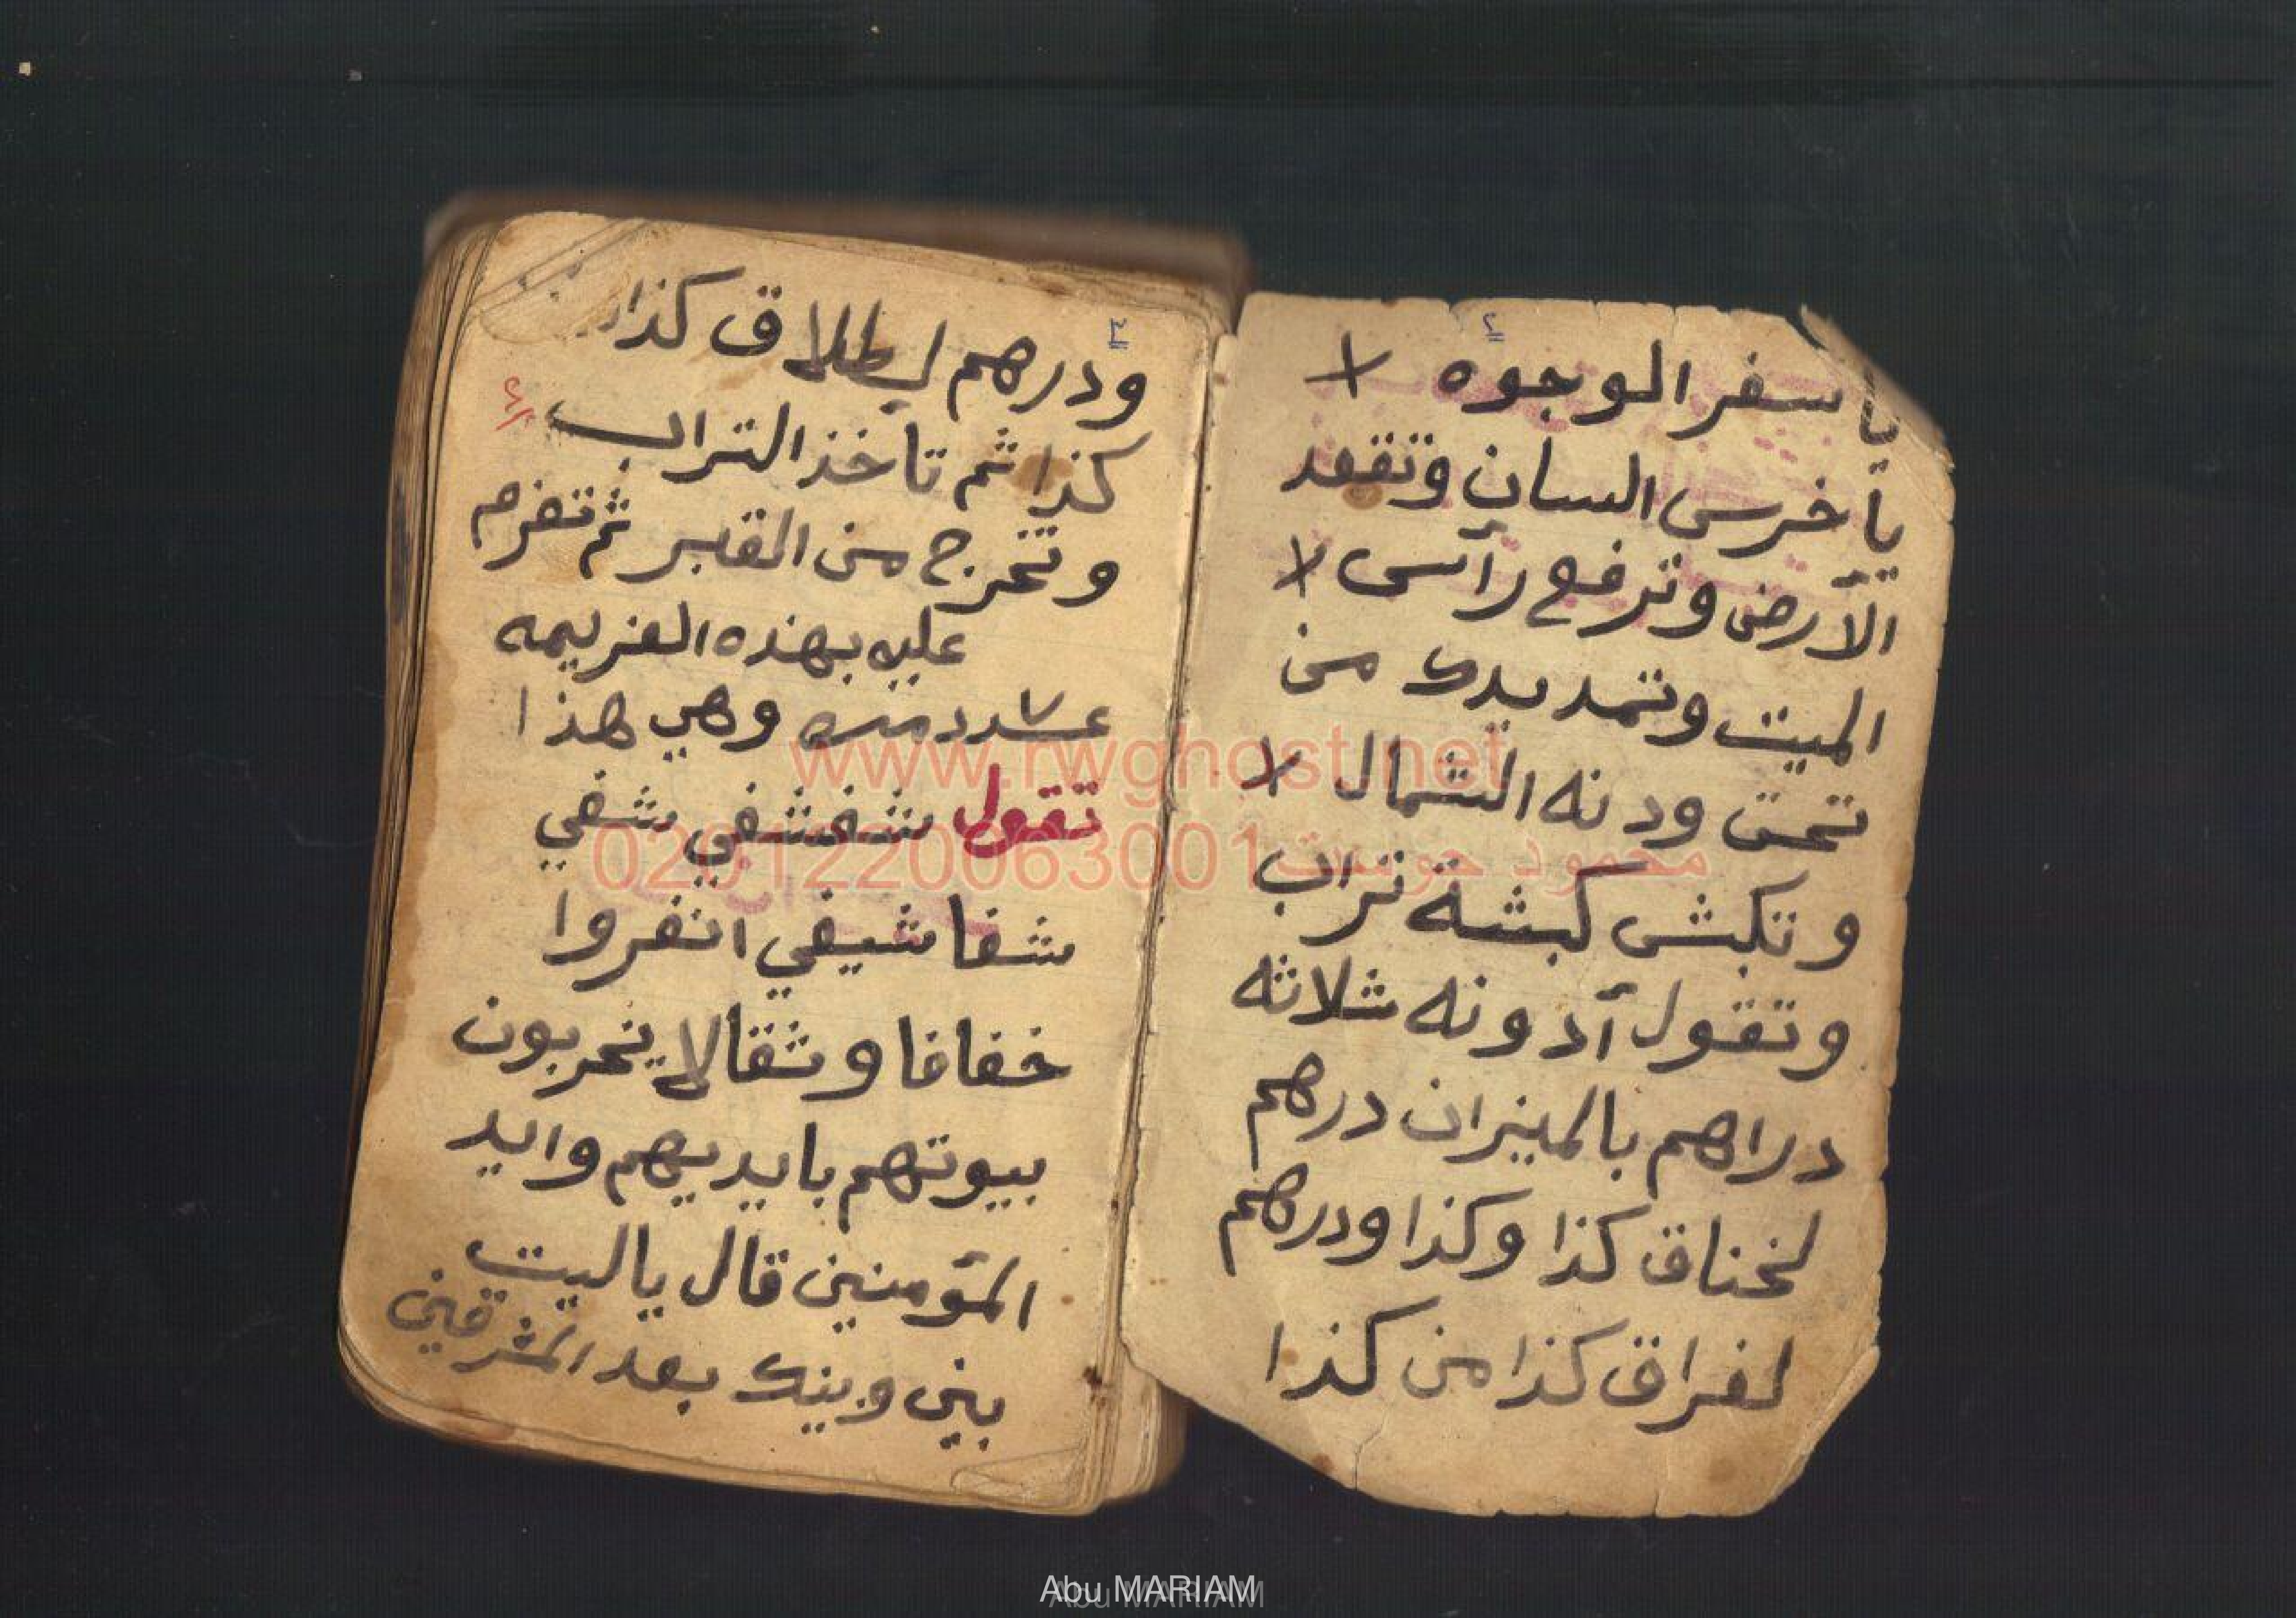 ٢
يا سفر الوجوه ×
يا خرس السان وتقعد
الآرض وترفع رآس ×
الميت وتمد يدك من
تحت ودنه الشمال ×
وتكبش كبشة تراب
وتقول آدونه ثلاثه
دراهم بالميزان درهم
لخناق كذا وكذا ودرهم
لفراق كذا من كذا
٣
ودرهم لطلاق كذا
كذا ثم تاخذ التراب
وتخرج من القبر ثم تعزم
عليه بهذه العزيمه
عدد مره وهي هذا
تقول شفشفي شفي
شفا شيفي انفروا
خفافا وثقالا يخربون
بيوتهم بايديهم وايد
المؤمنين قال ياليت
بيني وبينك بعد المشرقين
www.rwghost.net
محمود جوست 0201220063001
Abu MARIAM